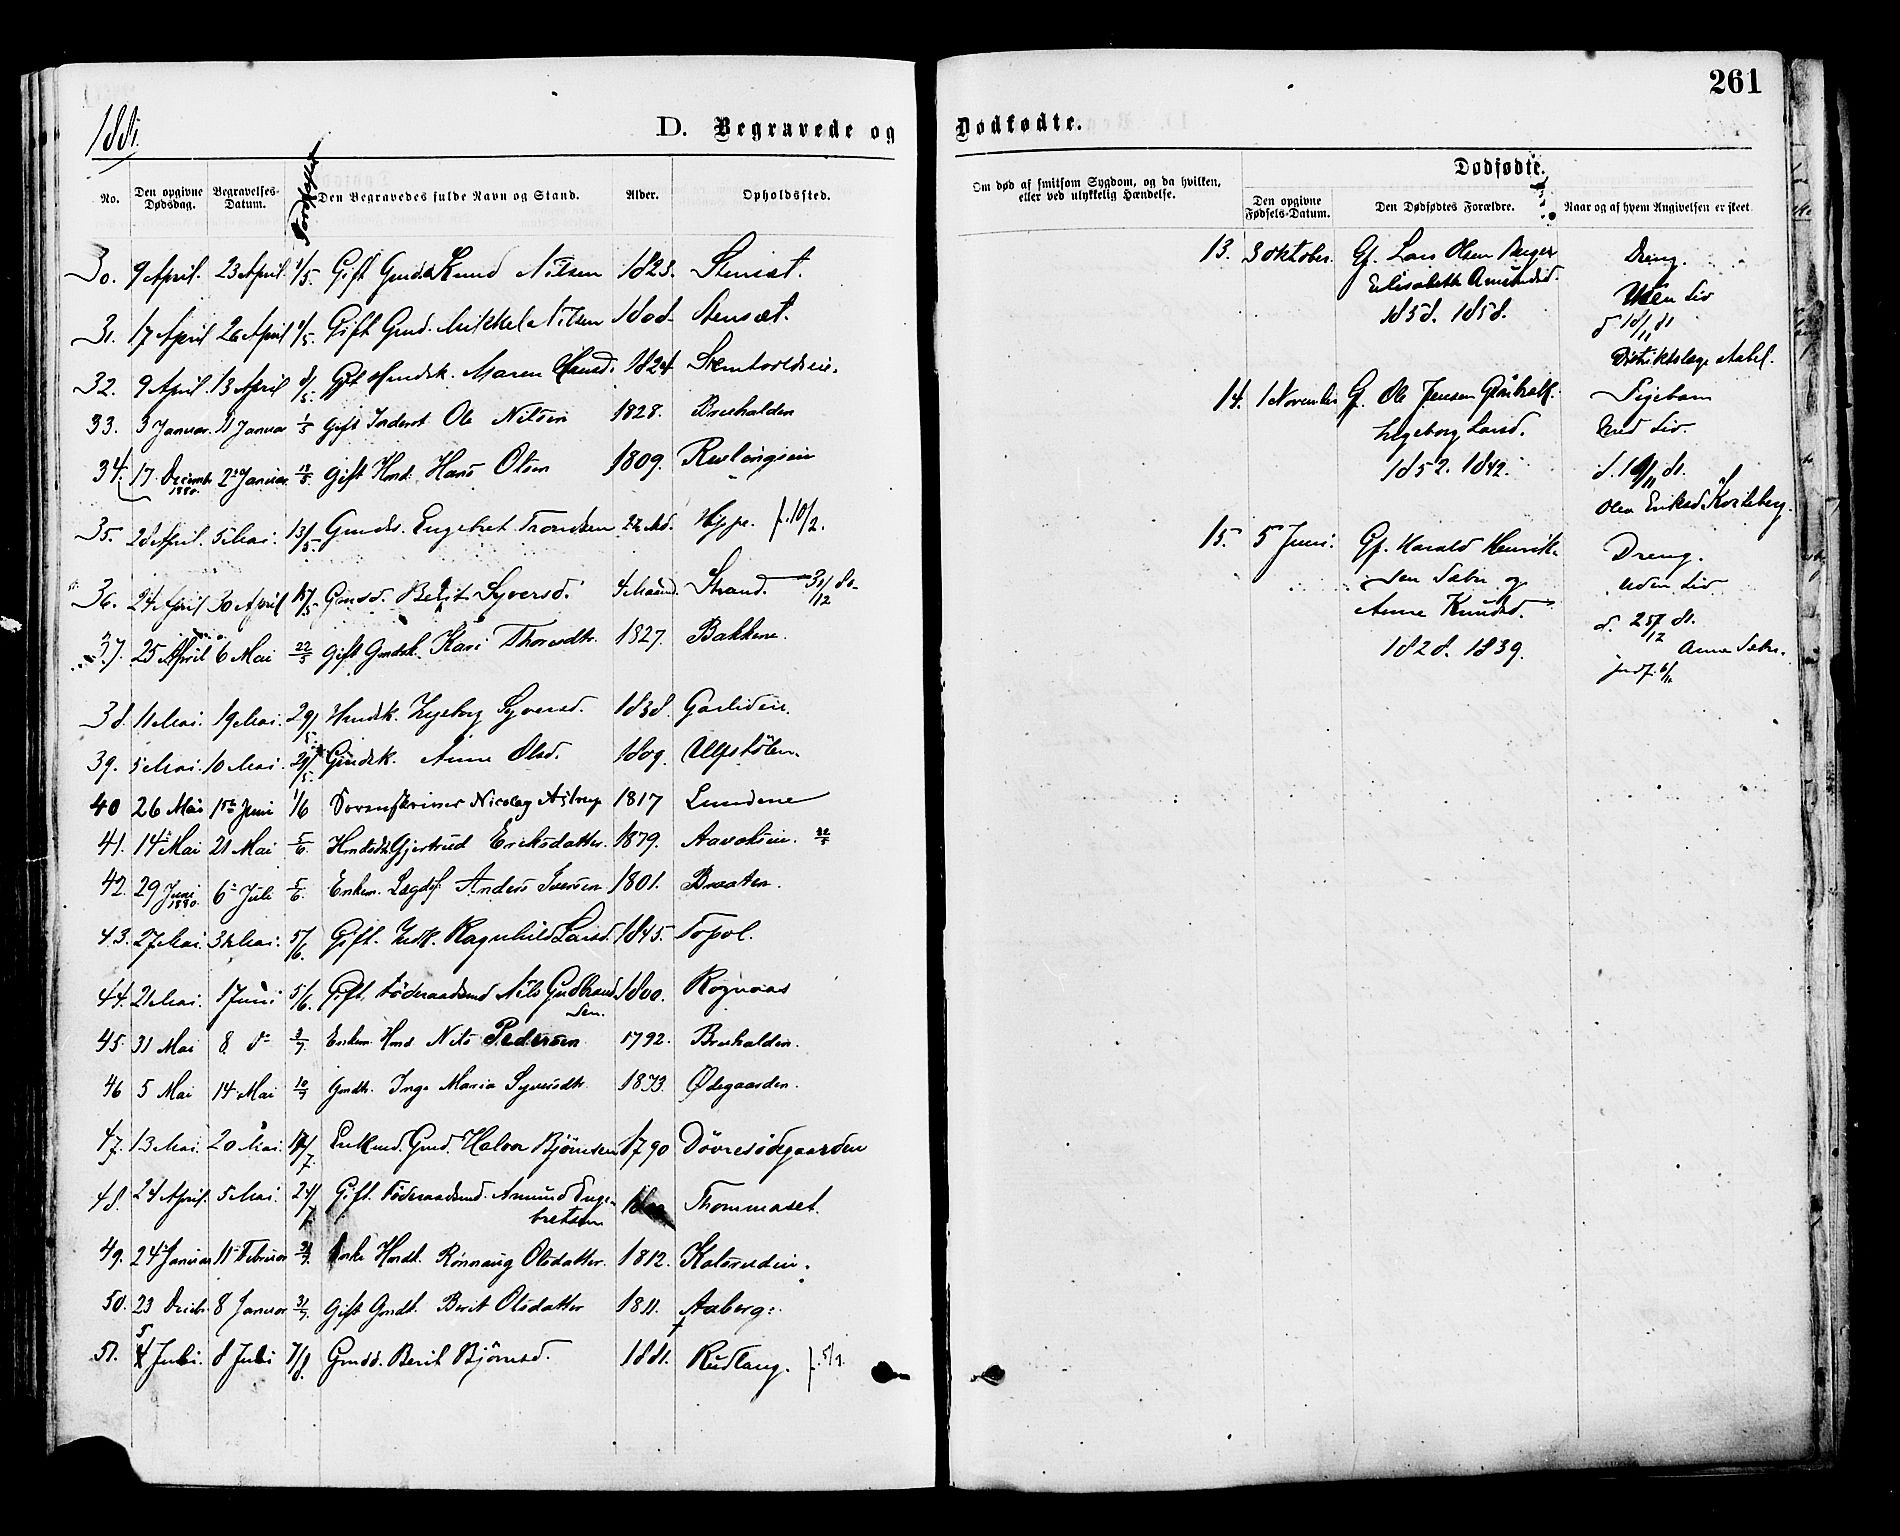 1881.
D. Begravede og
No. Den opgivne Dødsdag. Begravelses-Datum. Jordfæstet Den Begravedes fulde Navn og Stand. Alder. Opholdssted.
30. 9 April. 23 April. 1/5 Gift Gmd Knud Nilsen 1823. Stensæt.
31. 17 April 26 April 1/5. Gift Gmd. Mikkel Nilsen 1808 Stensæt.
32. 9 April. 13 April 8/5. Gift Maren Hansd. 1824
33. 3 Januar. 11 Januar 1/5 Gift Inderst Ole Nilsen 1828. Bræhalden
34. 17 Decemb 1880. 2 Januar Gift Hmd. Hans Olsen 1809.
35. 28 April. 5 Mai. 13/5. Engebret Trondsen Hippe. f. 10/2.
36. 24 April 30 April Berit Syversd. 4 Maaned. Strand. 31/12 80
37. 25 April 6 Mai 22/5 Gift Gmdsk. Kari Thoresdtr. 1827. Bakkene.
38. 11 Mai. 19 Mai. 29/5. Hmdsk. Ingeborg Syversd. 1838. Garlideie.
39. 5 Mai. 10 Mai. 29/5. Gmdsk. Anne Olsd. 1809. Ulfstölen.
40 26 Mai 1ste Juni 1/6 Sorenskriver Nicolay Astrup 1817 Lundene
41. 14 Mai 21 Mai 5/6. Gjertrud Eriksdatter. 1879. Aavolseie.
42. 29 Juni 1880. 6 Juli 5/6. Enkem. Lægdsl. Anders Iversen 1801. Braaten.
43. 27 Mai. 5/6. Gift. Indk. Ragnhild Larsd. 1845. Topol.
44. 21 Mai. 1 Juni 5/6. Gift. Föderaadsmd Nils Gudbrandsen. 1800. Rognaas
45. 31 Mai 8 d 3/7. Enkem. Hmd Nils Pedersen 1792. Bræhalden.
46 5 Mai 14 Mai 10/7 Gmdtr. Inge Maria Syversdtr. 1873. Ødegaarden.
47. 13 Mai. 20 Mai. Enkemd. Gmd. Halvor Bjömsen 1790 Dövresödegaarden
48. 24 April. 5 Mai. 24/7 Gift. Föderaadsmd. Amund Engebretsen Thommaset.
49. 24 Januar 11 Februar Enke Hmdk. Rönnaug Olsdatter. 1812. Kalsrudeie.
50. 23 Decbr 8 Januar 31/7. Gift Gmdk. Berit Olsdatter 1811. Aaberg.
51. 5 Juli. 8 Juli 7/8. Gmdd. Berit Björnsd. 1881. Rudlang. f. 5/1.
261
Dødfødte.
Om død af smitsom Sygdom, og da hvilken, eller ved ulykkelig Hændelse.
Dødfødte.
Den opgivne Fødsels-Datum. Den Dødfødtes Forældre. Naar og af hvem Angivelsen er skeet.
13. 3 oktober. Gf. Lars Olsen Dreng.
Elisabeth Amundsd. Uden Liv
1858. 1858. d 18/11 81
Distriktslæge Aabel.
14. 1 November Gf. Ole Jensen Pigebarn
Ingeborg Larsd. Uden Liv.
1852. 1842.
Olea Eriksd.
15. 5 Juni. Gf. Harald Henriksen Sæbu og Dreng.
Anne Knudsd. Uden Liv
1828. 1839.
Anne Sæbu.